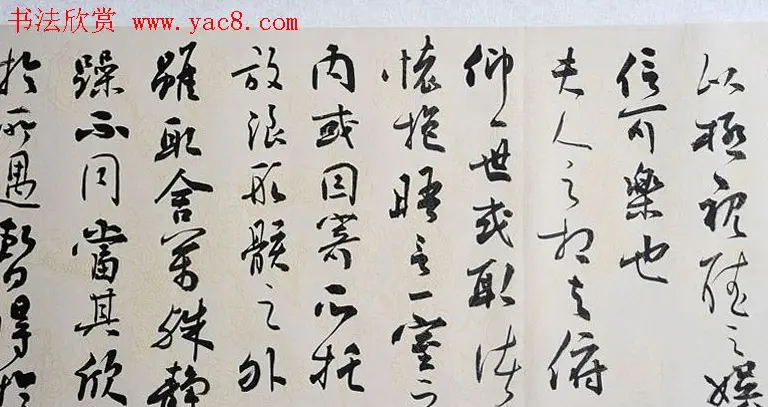 书法欣赏 www.yac8.com
以極視聽之娛
信可樂也
夫人之相與俯
仰一世或取諸
懷抱晤言一室之
內或因寄所托
放浪形骸之外
雖取舍萬殊静
躁不同當其欣
於所遇暫得於